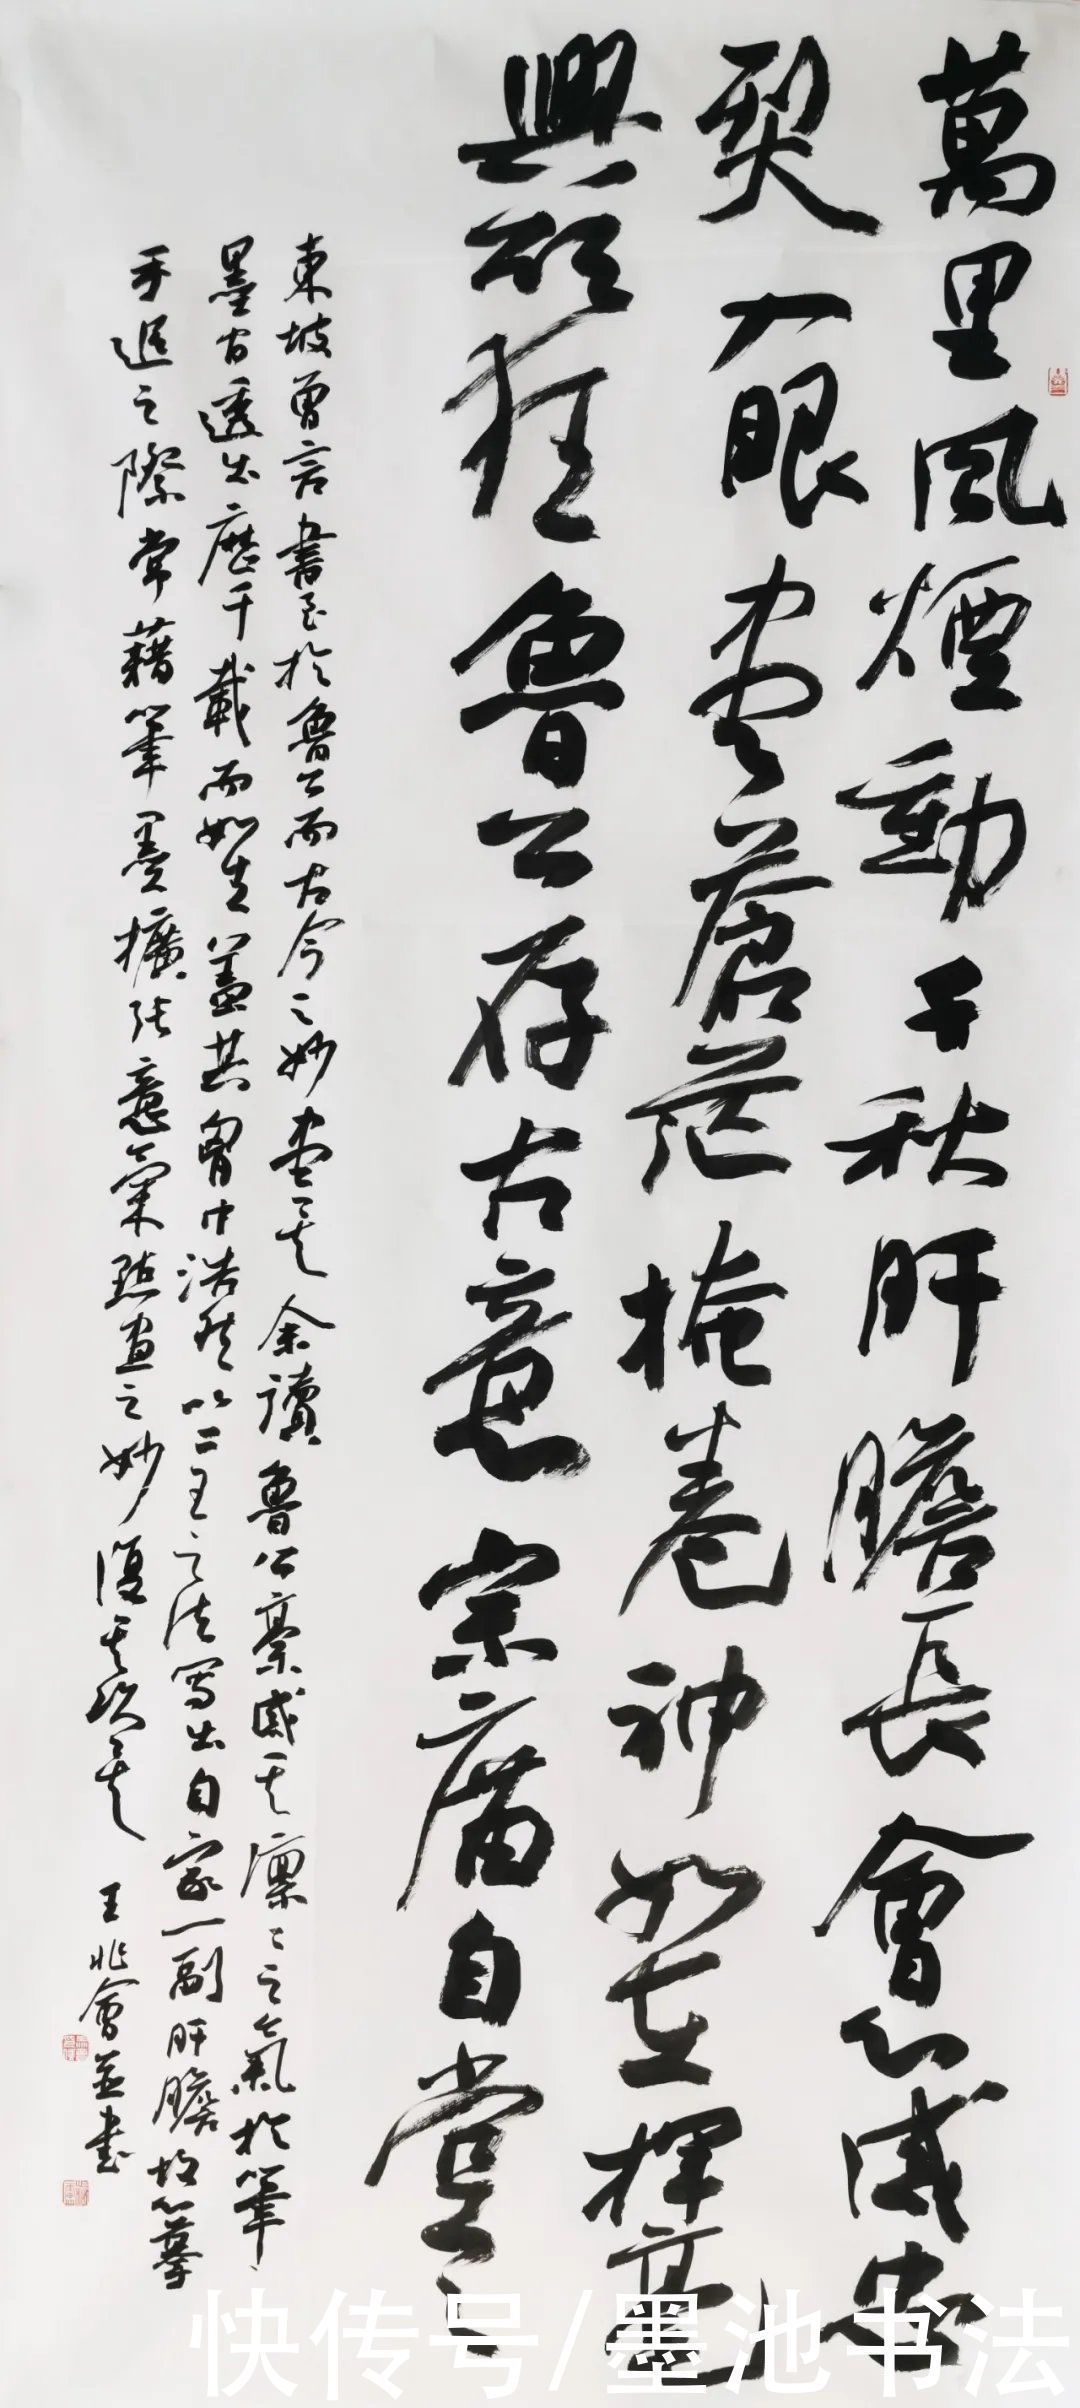 萬里風煙動千秋肝膽長會心感忠
烈入眼盡蒼茫掩卷神如在揮毫
興欲狂魯公存古意宗廟自堂々
東坡曾言書至於魯公而古今之妙盡矣余讀魯公稾感其凜々之氣於筆
墨省透出歷千載而如生蓋其胸中浩然以二王之法寫出自家一副肝膽故心摹
手追之際常藉筆墨擴張意氣點畫之妙復其次矣
王兆會並書
快传号/墨池书法